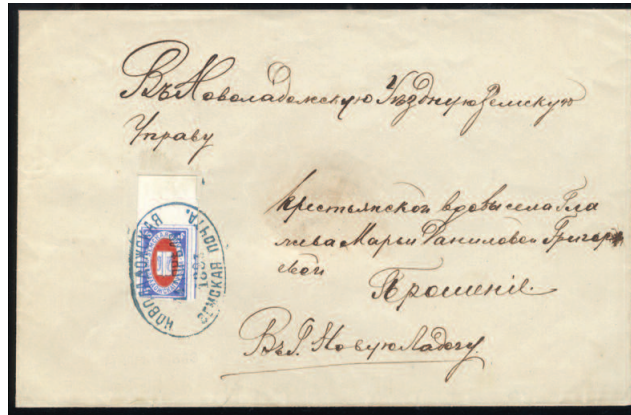 Въ Новоладожскую Уѣздную Земскую
Управу
Крестьянской вдовы села Пла
Марьи Даниловой Григорь
евой
Прошеніе.
Въ Г. Новую Ладогу.
НОВОЛАДОЖСКАЯ
ЗЕМСКАЯ ПОЧТА.